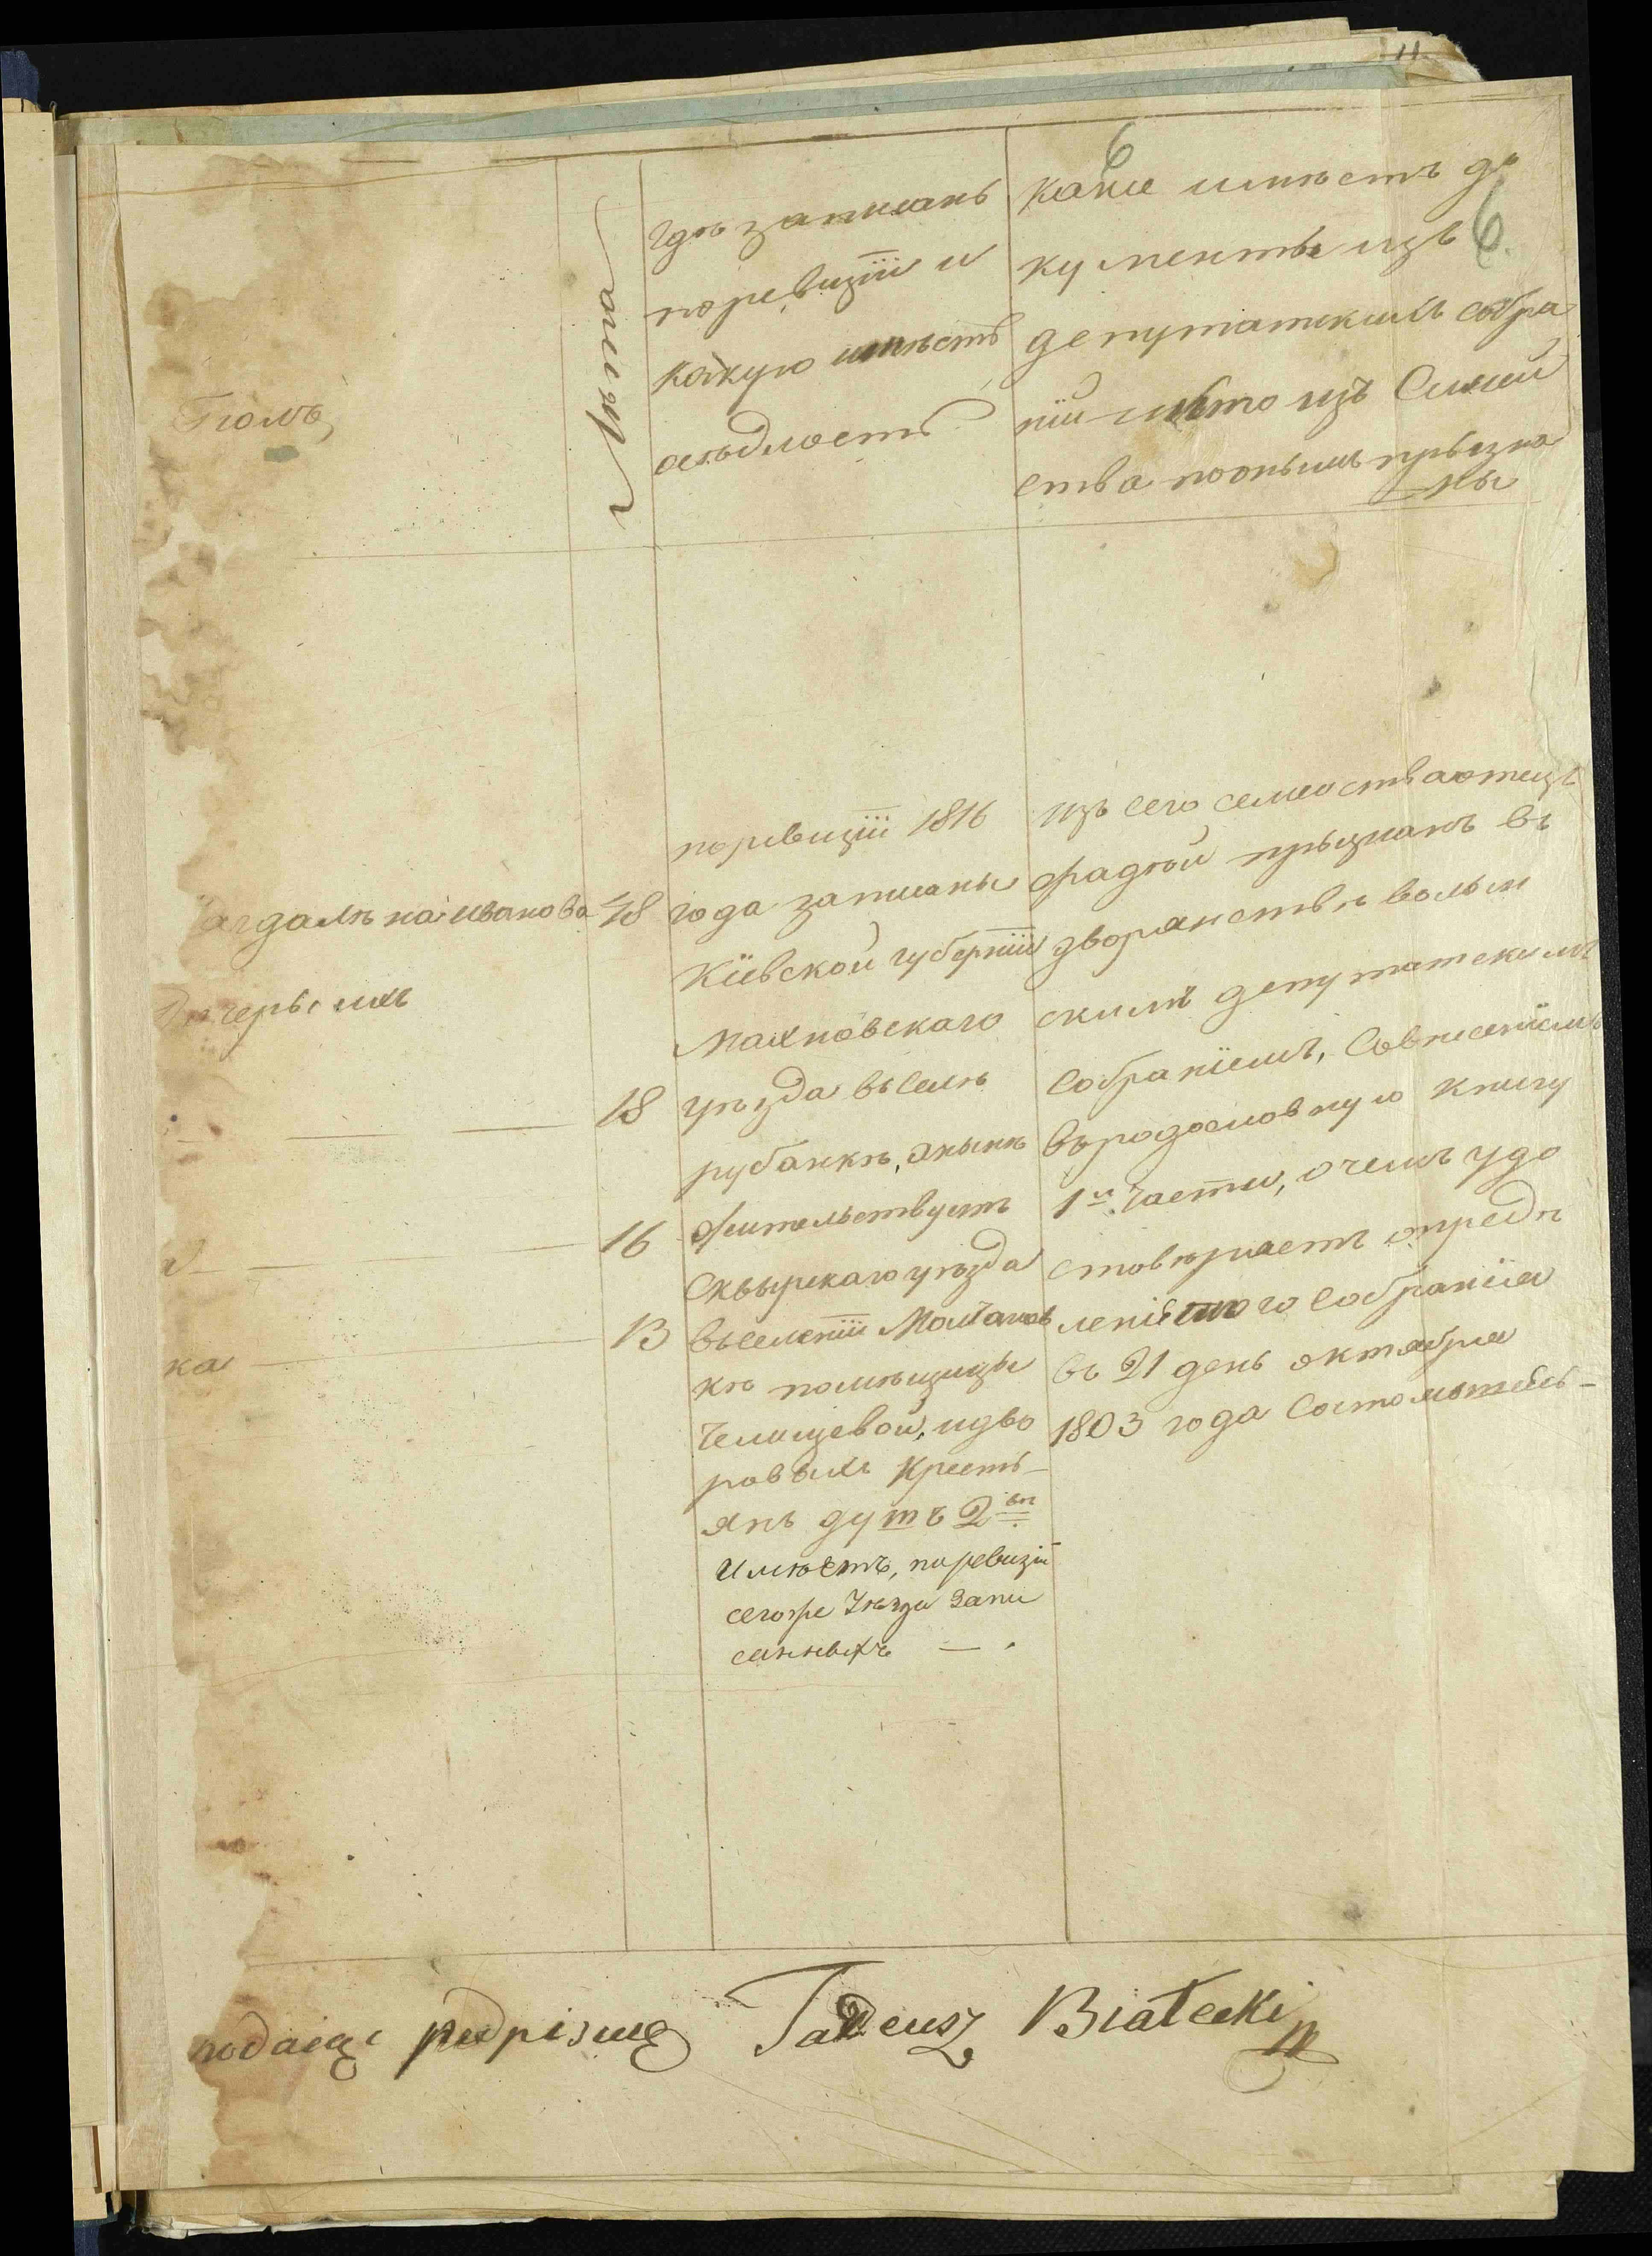 11
6
6.
Полъ,
Лѣта
гдѣ записанъ
поревизіи и
какую имѣетъ
осѣдлость
какие имѣетъ до
кументы изъ
депутатскихъ собра
ній и кто изъ Семей
ства поонымъ прызна
ны
агдалѣна Иванова
48
Дочеры ихъ
18
16
ка
13
поревизіи 1816
года записаны
Кіевской губерніи
Махновскаго
уѣзда въ Селѣ
рубанкѣ, анынѣ
жительствуетъ
Сквырскаго уѣзда
въселеніи Молчанов
кѣ помѣщицы
Челищевой, идво
ровыхъ Кресть-
янъ душъ 2вѣ
имѣетъ, поревизіи
сегоже Уѣзда запи
санныхъ — .
изъ сего семействаотецъ
Фадѣй прызнанъ въ
дворянствѣ волын
скимъ депутатскимъ
Собраніемъ, Совнесеніемъ
въродословную книгу
1й части, очемъ удо
стовѣряетъ опредѣ
леніе того Собранія
въ 21 день октября
1803 года Состоятель-
podaięc podpisuię Tadeusz Białecki